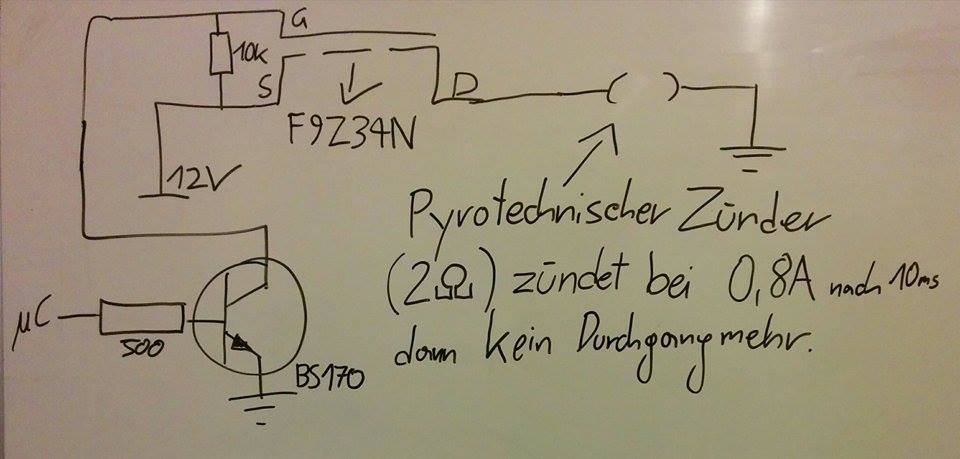 G
10k
S
D
F9Z34N
12V
Pyrotechnischer Zünder
(2Ω) zündet bei 0,8A nach 10ms
dann kein Durchgang mehr.
µC
500
BS170